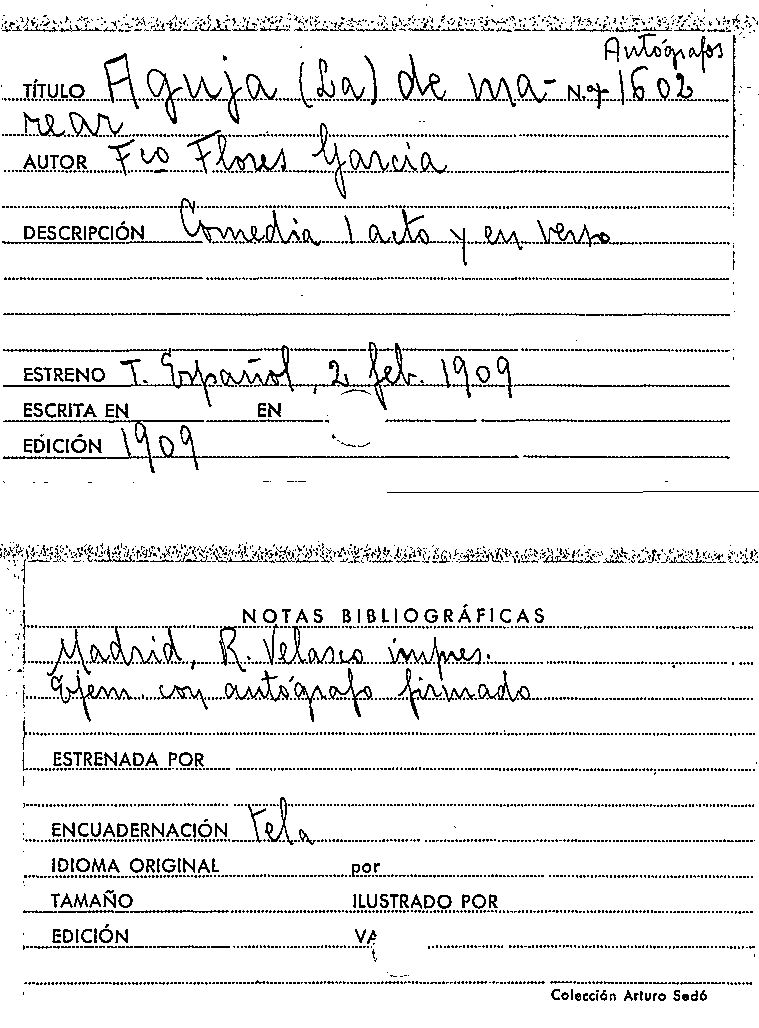 Autógrafos
TÍTULO Aguja (La) de ma- N.º 1602
rear
AUTOR Fco Flores García
DESCRIPCIÓN Comedia 1 acto y en verso
ESTRENO T. Español, 2 feb. 1909
ESCRITA EN EN
EDICIÓN 1909
NOTAS BIBLIOGRÁFICAS
Madrid, R. Velasco impres.
Ejem. con autógrafo firmado
ESTRENADA POR
ENCUADERNACIÓN Tela
IDIOMA ORIGINAL por
TAMAÑO ILUSTRADO POR
EDICIÓN VA
Colección Arturo Sedó